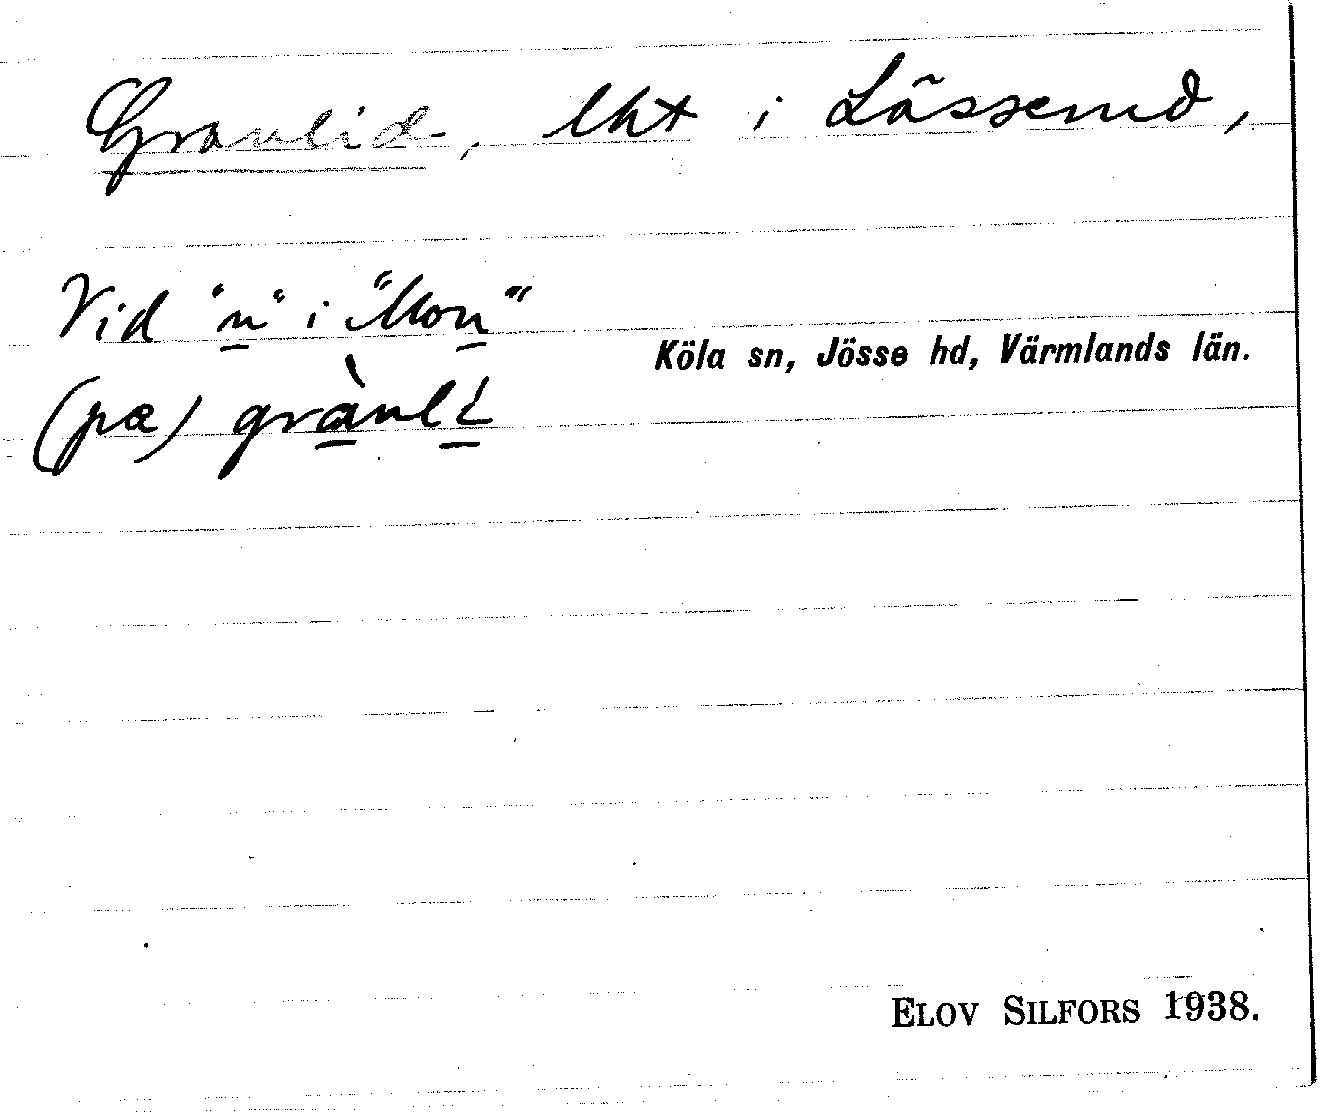 Granlid, lht i Lässerud,
Vid "n" i "Mon"
Köla sn, Jösse hd, Värmlands län.
(pα) grànlí
ELOV SILFORS 1938.